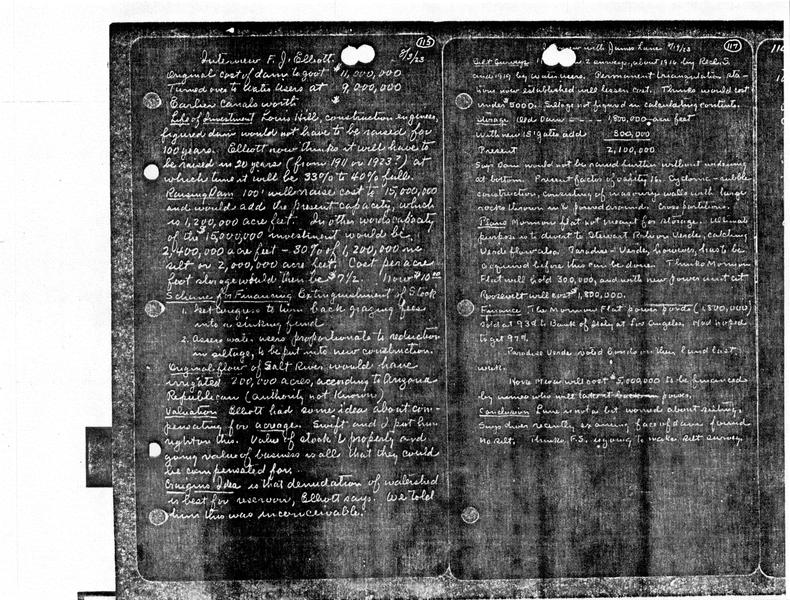 115
Interview F. J. Elliott. 8/3/23
Original cost of dam to goot $11,000,000
Turned over to water users at 9,000,000
Earlier canals worth $
Life of Investment Louis Hill, construction engineer,
figured dam would not have to be raised for
100 years. Elliott now thinks it will have to
be raised in 20 years (from 1911 or 1923?) at
which time it will be 33% to 40% full.
Raising Dam 100' will raise cost to $15,000,000
and would add the present capacity, which
is 1,200,000 acre feet. In other words capacity
of the $15,000,000 investment would be
2,400,000 acre feet - 30% of 1,200,000 in
silt or 2,000,000 acre feet. Cost per acre
foot storage would then be $7½. Now $10.00
Scheme for Financing Extinguishment of Stock
1. Get Congress to turn back grazing fees
into a sinking fund
2. Assess water users proportionate to reduction
in siltage, to be put into new construction.
Original flow of Salt River would have
irrigated 200,000 acres, according to Arizona
Republican (authority not known)
Valuation Elliott had some ideas about com-
pensating for acreage. Swift and I put him
right on this. Value of stock & property and
going value of business is all that they could
be compensated for.
Craigins Idea is that denudation of watershed
is best for reservoir, Elliott says. We told
him this was inconceivable.
117
with James Lane 8/19/23
Silt Surveys 2 surveys, about 1916 by Recl. S.
and 1919 by water users. Permanent triangulation sta-
tions now established will lessen cost. Thinks would cost
under $5000. Sillage not figured in calculating contents.
Storage Old Dam - - - - 1,800,000 acre feet
With new 15' gates add 300,000
Present 2,100,000
Says dam would not be raised further without widening
at bottom. Present factor of safety 16. Cyclonic-rubble
construction, consisting of masonry walls with large
rocks thrown in & poured around. Cross partitions.
Plans Mormon Flat not meant for storage. Ultimate
purpose is to divert to Stewart Ratio on Verde, catching
Verde flow also. Paradise-Verde, however, has to be
acquired before this can be done. Thinks Mormon
Flat will hold 300,000, and with new power unit at
Roosevelt will cost $1,800,000.
Finance The Mormon Flat power bonds (1,800,000)
Sold at 93¢ to Bank of Italy at Los Angeles. Had hoped
to get 97¢.
Paradise Verde voted bonds on their land last
week.
Horse Mesa will cost $5,000,000 to be financed
by mines who will take it back in power.
Conclusion Lane is not a bit worried about silting.
Says diver recently examining face of dam found
no silt. Thinks F.S. is going to make silt survey.